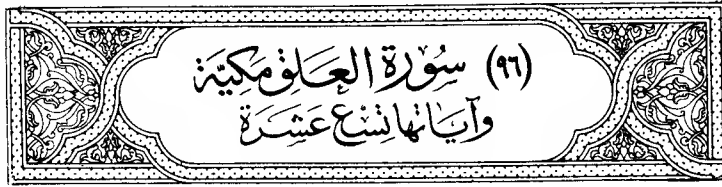 (٩٦) سُورَة العَلق مَكيَّة
وآيَاتها تسْع عَشرَة